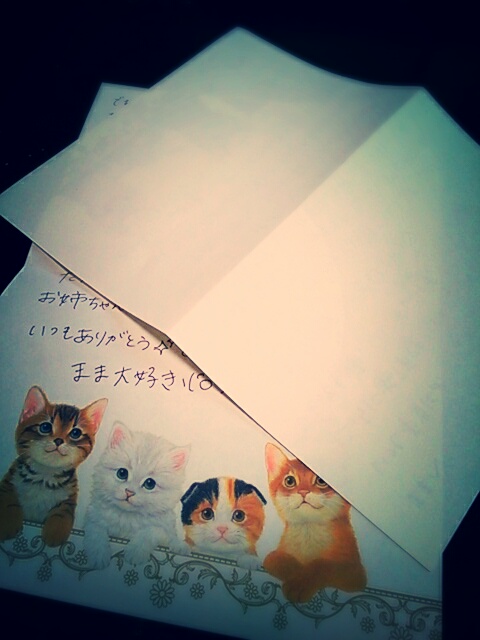 でき
た
お姉ちゃん
いつもありがとう☆
まま大好き